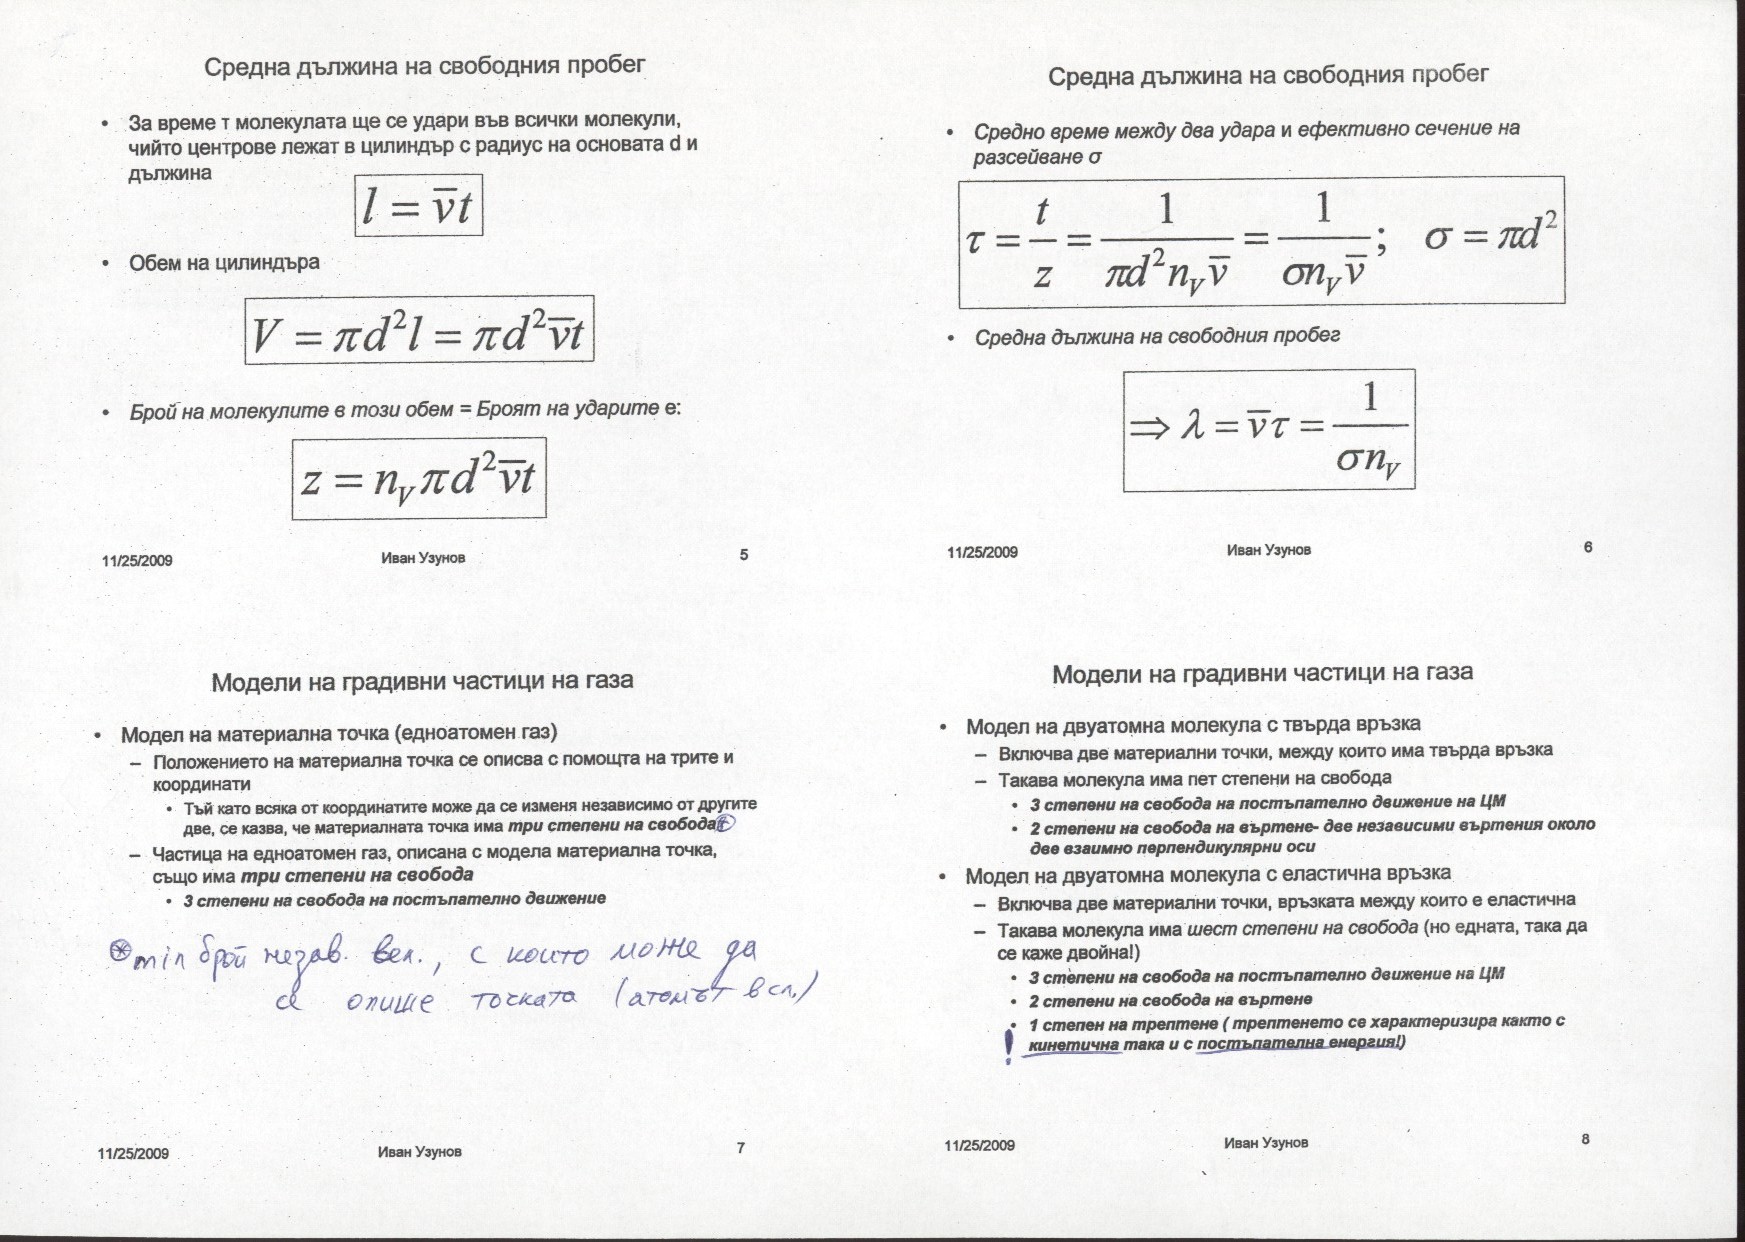 Средна дължина на свободния пробег
• За време т молекулата ще се удари във всички молекули,
чийто центрове лежат в цилиндър с радиус на основата d и
дължина
l = v̅t
• Обем на цилиндъра
V = πd²l = πd²v̅t
• Брой на молекулите в този обем = Броят на ударите е:
z = n_V πd²v̅t
11/25/2009 Иван Узунов 5
Средна дължина на свободния пробег
• Средно време между два удара и ефективно сечение на
разсейване σ
τ = t/z = 1/(πd²n_V v̅) = 1/(σn_V v̅); σ = πd²
• Средна дължина на свободния пробег
⇒ λ = v̅τ = 1/(σn_V)
11/25/2009 Иван Узунов 6
Модели на градивни частици на газа
• Модел на материална точка (едноатомен газ)
– Положението на материална точка се описва с помощта на трите и
координати
• Тъй като всяка от координатите може да се изменя независимо от другите
две, се казва, че материалната точка има три степени на свобода
– Частица на едноатомен газ, описана с модела материална точка,
също има три степени на свобода
• 3 степени на свобода на постъпателно движение
⊛ min брой незав. вел., с които може да
се опише точката (атомът в сл.)
11/25/2009 Иван Узунов 7
Модели на градивни частици на газа
• Модел на двуатомна молекула с твърда връзка
– Включва две материални точки, между които има твърда връзка
– Такава молекула има пет степени на свобода
• 3 степени на свобода на постъпателно движение на ЦМ
• 2 степени на свобода на въртене- две независими въртения около
две взаимно перпендикулярни оси
• Модел на двуатомна молекула с еластична връзка
– Включва две материални точки, връзката между които е еластична
– Такава молекула има шест степени на свобода (но едната, така да
се каже двойна!)
• 3 степени на свобода на постъпателно движение на ЦМ
• 2 степени на свобода на въртене
• 1 степен на трептене ( трептенето се характеризира както с
! кинетична така и с постъпателна енергия!)
11/25/2009 Иван Узунов 8